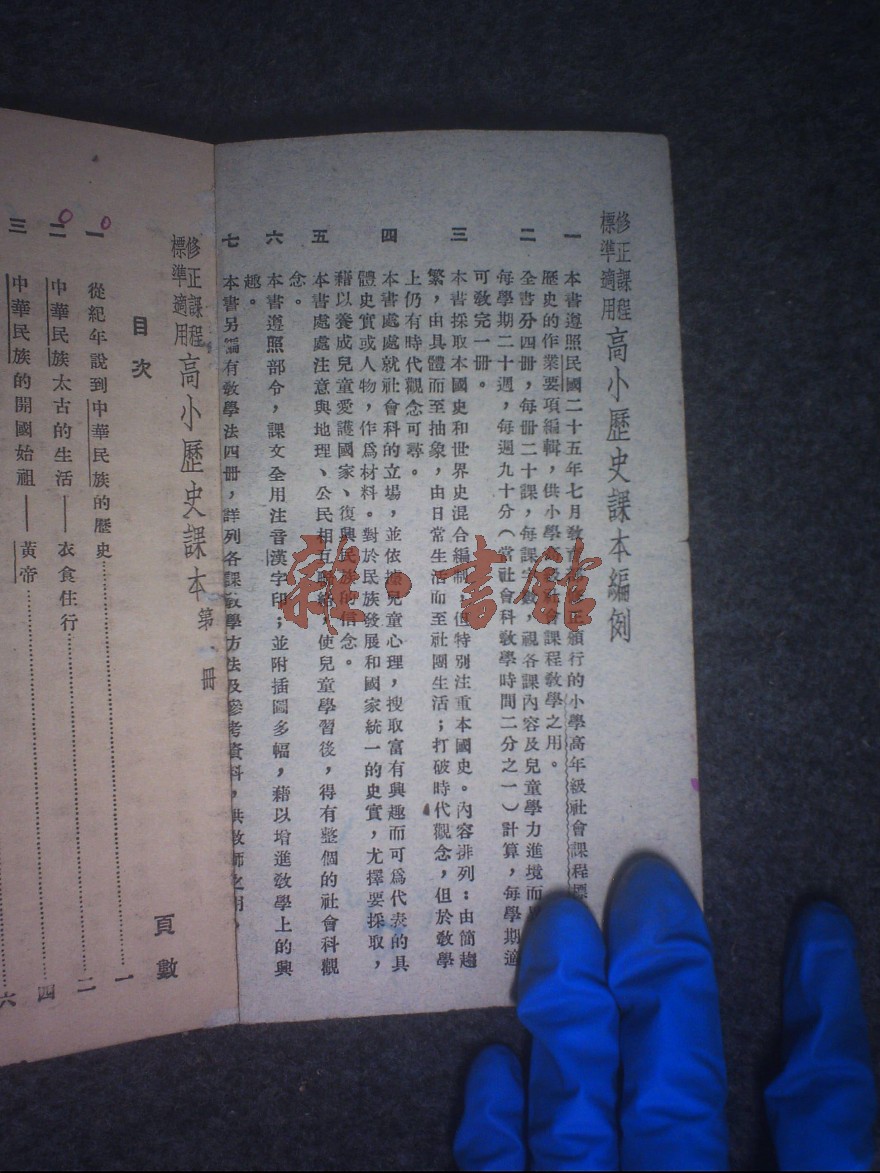 修正課程
標準適用
高小歷史課本編例
一 本書遵照民國二十五年七月教育部修正頒行的小學高年級社會課程標
歷史的作業要項編輯，供小學高級社會課程教學之用。
二 全書分四冊，每冊二十課，每課 數，視各課內容及兒童學力進境而
每學期二十週，每週九十分（當社會科教學時間二分之一）計算，每學期適
可教完一冊。
三 本書採取本國史和世界史混合編制，但特別注重本國史。內容排列：由簡趨
繁，由具體而至抽象，由日常生活而至社團生活；打破時代觀念，但於教學
上仍有時代觀念可尋。
四 本書處處就社會科的立場，並依據兒童心理，搜取富有興趣而可爲代表的具
體史實或人物，作爲材料。對於民族發展和國家統一的史實，尤擇要採取，
藉以養成兒童愛護國家、復興民族的信念。
五 本書處處注意與地理、公民相互聯絡，使兒童學習後，得有整個的社會科觀
念。
六 本書遵照部令，課文全用注音漢字印；並附插圖多幅，藉以增進教學上的興
趣。
七 本書另編有教學法四冊，詳列各課教學方法及參考資料，供教師之用。
修正課程
標準適用
高小歷史課本 第一冊
目次
頁數
一 從紀年說到中華民族的歷史……一
二 中華民族太古的生活——衣食住行……二
三 中華民族的開國始祖——黃帝……四
六
雜·書館